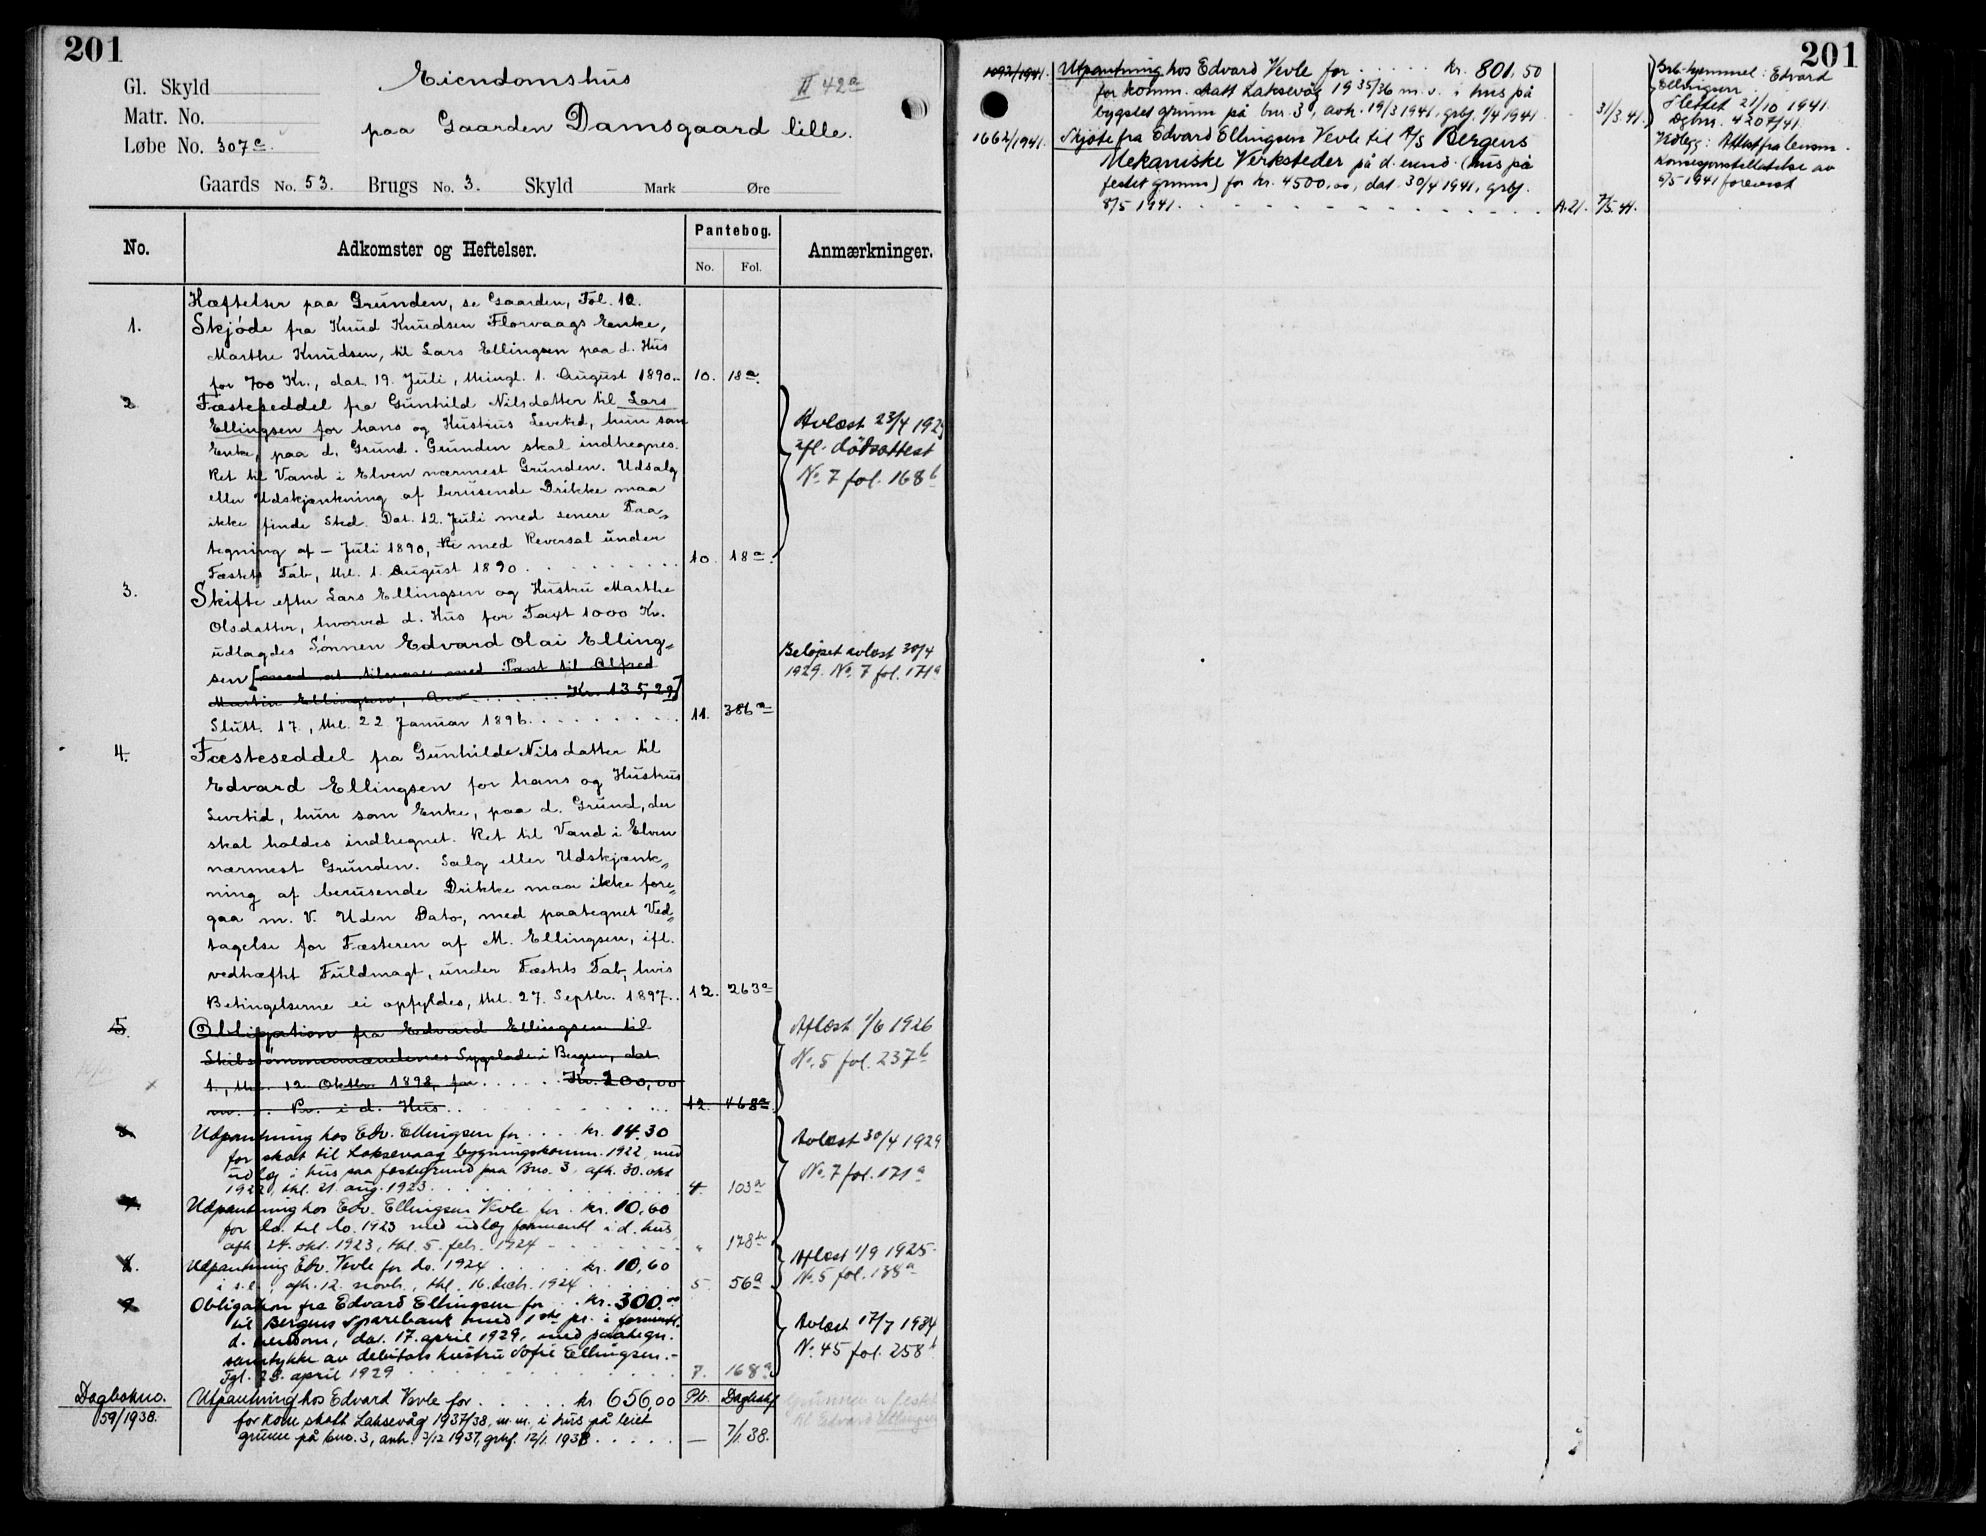 201
Gl. Skyld
Matr. No.
Løbe No. 307a
Eiendomshus
II 42a
paa Gaarden Damsgaard lille.
Gaards No. 53. Brugs No. 3. Skyld Mark Øre
No. Adkomster og Heftelser. Pantebog. No. Fol. Anmærkninger.
Hæftelser paa Grunden, se Gaarden, Fol. 10.
1. Skjøde fra Knud Knudsen Florvaags Enke,
Marthe Knudsen, til Lars Ellingsen paa d. Hus
for 700 Kr., dat. 19. Juli, thingl. 1. August 1890.. 10. 18a.
2 Fæsteseddel fra Gunhild Nilsdatter til Lars
Ellingsen for hans og Hustrus Levetid, hun som
Enke, paa d. Grund. Grunden skal indhegnes.
Ret til Vand i Elven nærmest Grunden. Udsalg
eller Udskjænkning af berusende Drikke maa
ikke finde Sted. Dat. 12. Juli med senere Paa-
tegning af – Juli 1890, med Reversal under
Fæstets Tab, thl. 1. August 1890 . . . . . . . . 10. 18a.
Avlæst 23/4 1929
ifl. dødsattest
No. 7 fol. 168b
3. Skifte efter Lars Ellingsen og Hustru Marthe
Olsdatter, hvorved d. Hus for Taxt 1000 Kr.
udlagdes Sønnen Edvard Olai Elling-
sen [mod at tilsvare med Pant til Alfred
Martin Ellingsen, Arv . . . . . Kr. 135,29]
Slutt. 17., thl. 22 Januar 1896. . . . . . . . . 11. 386a
Beløpet avlæst 30/4
1929. No. 7 fol. 171a
4. Fæsteseddel fra Gunhilde Nilsdatter til
Edvard Ellingsen for hans og Hustrus
Levetid, hun som Enke, paa d. Grund, der
skal holdes indhegnet. Ret til Vand i Elven
nærmest Grunden. Salg eller Udskjænk-
ning af berusende Drikke maa ikke fore-
gaa m. V. Uden Dato, med paategnet Ved-
tagelse for Fæsteren af M. Ellingsen, ifl.
vedhæftet Fuldmagt, under Fæstets Tab, hvis
Betingelserne ei opfyldes, thl. 27. Septbr. 1897.. 12. 263a
5. Obligation fra Edvard Ellingsen til
Skibstømmermændenes Sygelade i Bergen, dat.
1., thl. 12. Oktbr. 1898, for . . . . . . Kr. 200,00
m. 1. Pr. i d. Hus. . . . . . . . . . . . 12. 468a
Aflæst 1/6 1926
No. 5 fol. 237b
6. Udpantning hos Edv. Ellingsen for . . . . kr. 14.30
for skat til Laksevaag bygningskomm. 1922, med
udlæg i hus paa fæstegrund paa Bno. 3, afh. 30. okt
1922, thl. 21. aug. 1923. . . . . . . . . 4. 103a
7. Udpantning hos Edv. Ellingsen Vevle for . kr. 10,60
for do. til do. 1923 med udlæg formentl i d. hus,
afh. 24. okt. 1923, thl. 5. febr. 1924 - - - - - - " 178b
Avlæst 30/4 1929
No. 7 fol. 171a
8. Udpantning Edv. Vevle for do. 1924 . . . . . kr. 10,60
i s.e., afh. 12. novbr., thl. 16. decb. 1924 . . . . . . 5 56a
Aflæst 1/9 1925.
No. 5 fol. 188a
9. Obligation fra Edvard Ellingsen for . . kr. 300.00
til Bergens Sparebank med 1ste pr. i formentl.
d. eiendom, dat. 17. april 1929, med paategn.
samtykke av debitors hustru Sofie Ellingsen. -
Tgl. 23. april 1929 . . . . . . . . . . 7. 168a
Avlæst 17/7 1934
No. 45 fol. 258b
Dagbokno. Pb. Dagbokf
59/1938. Utpantning hos Edvard Vevle for . . . . . . kr 656,00
for kom skatt Laksevåg 1937/38, m.m., i hus på leiet
grunn på bno. 3, avh. 3/12 1937, grbf. 12/1. 1938 . . . . . — 7/1.38.
Grunnen er festet
til Edvard Ellingsen
201
1092/1941. Utpantning hos Edvard Vevle for . . . . . kr. 801.50
for komm. skatt Laksevåg 1935/36 m.v. i hus på
bygslet grunn på bnr. 3, avh. 19/3 1941, grbf. 1/4 1941. - 31/3.41.
Grb-hjemmel: Edvard
Ellingsen
Slettet 21/10 1941.
Dgbnr. 4207/41.
1662/1941. Skjøte fra Edvard Ellingsen Vevle til A/S Bergens
Mekaniske Verksteder på d. eiend. (hus på
festet grunn) for kr. 4500,00, dat. 30/4 1941, grbf.
8/5 1941. - - - - - - - - - - - A.21. 7/5.41.
Vedlegg: Attest fra lensm.
Konsesjonstillatelse av
6/5 1941 forevist